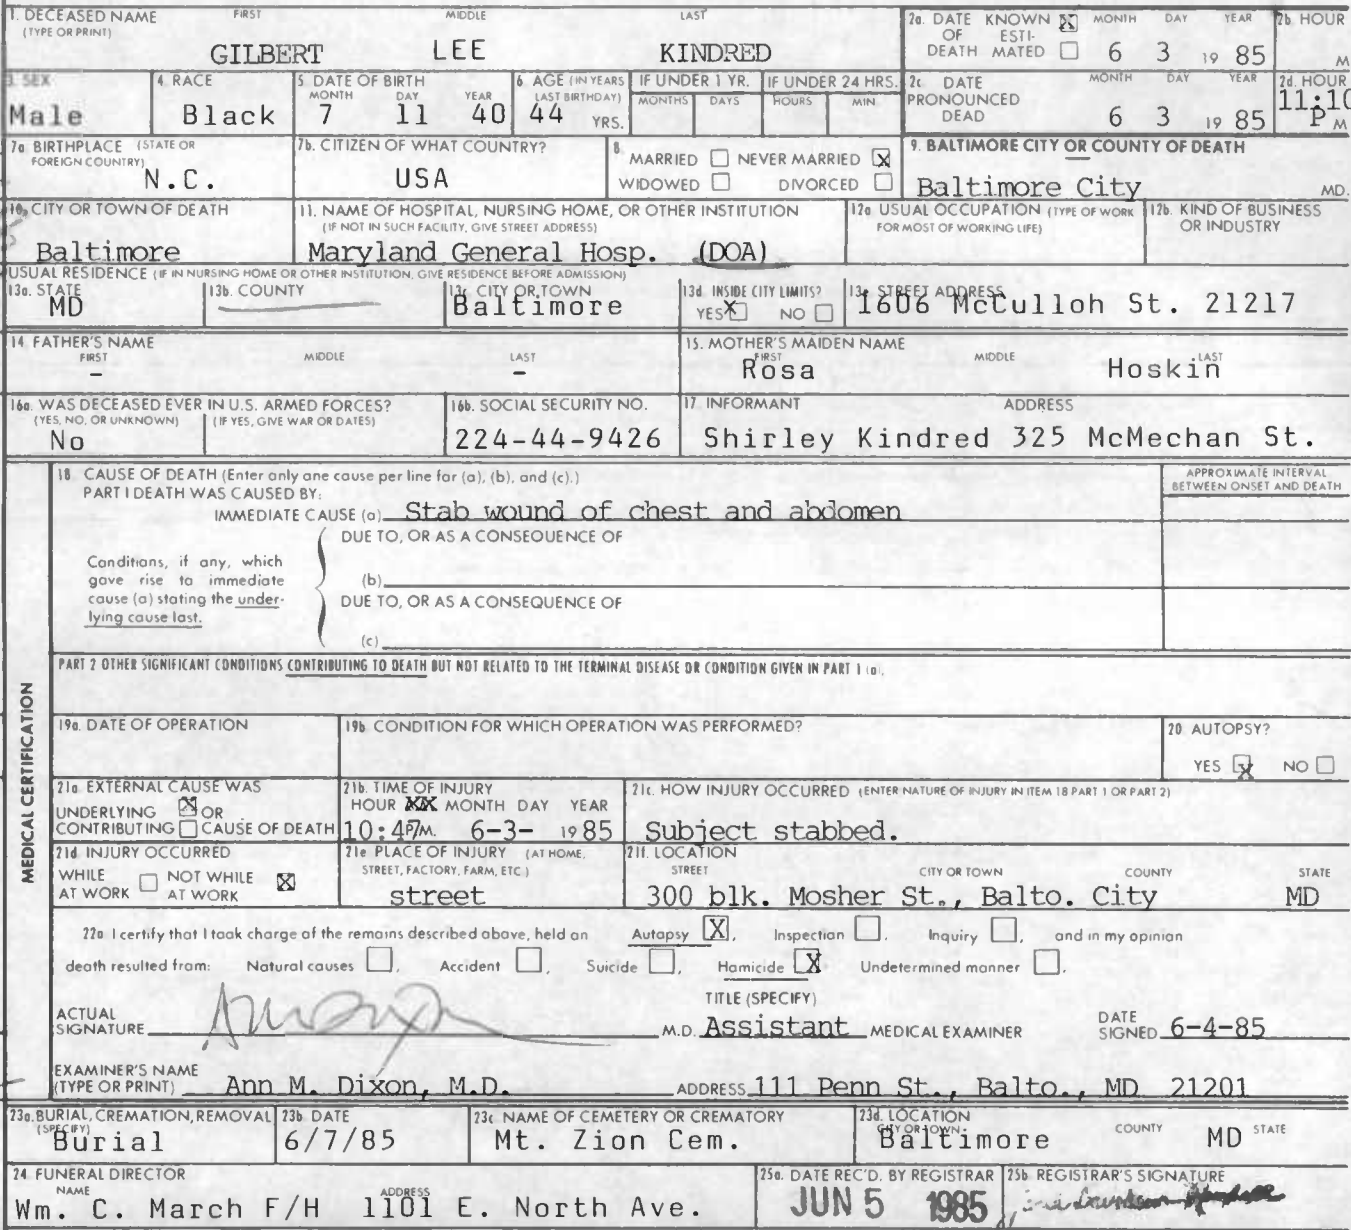 1. DECEASED NAME FIRST MIDDLE LAST
(TYPE OR PRINT)
GILBERT LEE KINDRED
2a. DATE KNOWN X MONTH DAY YEAR
OF ESTI-
DEATH MATED 6 3 19 85
2b. HOUR
M
3. SEX
Male
4. RACE
Black
5. DATE OF BIRTH
MONTH DAY YEAR
7 11 40
6. AGE (IN YEARS
LAST BIRTHDAY)
44 YRS.
IF UNDER 1 YR.
MONTHS DAYS
IF UNDER 24 HRS.
HOURS MIN
2c. DATE MONTH DAY YEAR
PRONOUNCED
DEAD 6 3 19 85
2d. HOUR
11:10
P M
7a. BIRTHPLACE (STATE OR
FOREIGN COUNTRY)
N.C.
7b. CITIZEN OF WHAT COUNTRY?
USA
8.
MARRIED NEVER MARRIED X
WIDOWED DIVORCED
9. BALTIMORE CITY OR COUNTY OF DEATH
Baltimore City MD.
10. CITY OR TOWN OF DEATH
Baltimore
11. NAME OF HOSPITAL, NURSING HOME, OR OTHER INSTITUTION
(IF NOT IN SUCH FACILITY, GIVE STREET ADDRESS)
Maryland General Hosp. (DOA)
12a. USUAL OCCUPATION (TYPE OF WORK
FOR MOST OF WORKING LIFE)
12b. KIND OF BUSINESS
OR INDUSTRY
USUAL RESIDENCE (IF IN NURSING HOME OR OTHER INSTITUTION, GIVE RESIDENCE BEFORE ADMISSION)
13a. STATE
MD
13b. COUNTY
13c. CITY OR TOWN
Baltimore
13d. INSIDE CITY LIMITS?
YES X NO
13e. STREET ADDRESS
1606 McCulloh St. 21217
14. FATHER'S NAME
FIRST MIDDLE LAST
- -
15. MOTHER'S MAIDEN NAME
FIRST MIDDLE LAST
Rosa Hoskin
16a. WAS DECEASED EVER IN U.S. ARMED FORCES?
(YES, NO, OR UNKNOWN) (IF YES, GIVE WAR OR DATES)
No
16b. SOCIAL SECURITY NO.
224-44-9426
17. INFORMANT ADDRESS
Shirley Kindred 325 McMechan St.
MEDICAL CERTIFICATION
18. CAUSE OF DEATH (Enter only one cause per line for (a), (b), and (c).)
PART I DEATH WAS CAUSED BY:
IMMEDIATE CAUSE (a) Stab wound of chest and abdomen
APPROXIMATE INTERVAL
BETWEEN ONSET AND DEATH
DUE TO, OR AS A CONSEQUENCE OF
Conditions, if any, which
gave rise to immediate
cause (a) stating the under-
lying cause last.
(b)
DUE TO, OR AS A CONSEQUENCE OF
(c)
PART 2 OTHER SIGNIFICANT CONDITIONS CONTRIBUTING TO DEATH BUT NOT RELATED TO THE TERMINAL DISEASE OR CONDITION GIVEN IN PART 1 (a).
19a. DATE OF OPERATION
19b. CONDITION FOR WHICH OPERATION WAS PERFORMED?
20. AUTOPSY?
YES X NO
21a. EXTERNAL CAUSE WAS
UNDERLYING X OR
CONTRIBUTING CAUSE OF DEATH
21b. TIME OF INJURY
HOUR XX MONTH DAY YEAR
10:47 P.M. 6-3- 19 85
21c. HOW INJURY OCCURRED (ENTER NATURE OF INJURY IN ITEM 18 PART 1 OR PART 2)
Subject stabbed.
21d. INJURY OCCURRED
WHILE AT WORK NOT WHILE AT WORK X
21e. PLACE OF INJURY (AT HOME,
STREET, FACTORY, FARM, ETC.)
street
21f. LOCATION
STREET CITY OR TOWN COUNTY STATE
300 blk. Mosher St., Balto. City MD
22a. I certify that I took charge of the remains described above, held an Autopsy X, Inspection , Inquiry , and in my opinion
death resulted from: Natural causes , Accident , Suicide , Homicide X Undetermined manner .
ACTUAL
SIGNATURE
TITLE (SPECIFY)
M.D. Assistant MEDICAL EXAMINER
DATE
SIGNED 6-4-85
EXAMINER'S NAME
(TYPE OR PRINT) Ann M. Dixon, M.D. ADDRESS 111 Penn St., Balto., MD 21201
23a. BURIAL, CREMATION, REMOVAL
(SPECIFY)
Burial
23b. DATE
6/7/85
23c. NAME OF CEMETERY OR CREMATORY
Mt. Zion Cem.
23d. LOCATION
CITY OR TOWN COUNTY STATE
Baltimore MD
24. FUNERAL DIRECTOR
NAME ADDRESS
Wm. C. March F/H 1101 E. North Ave.
25a. DATE REC'D. BY REGISTRAR
JUN 5 1985
25b. REGISTRAR'S SIGNATURE